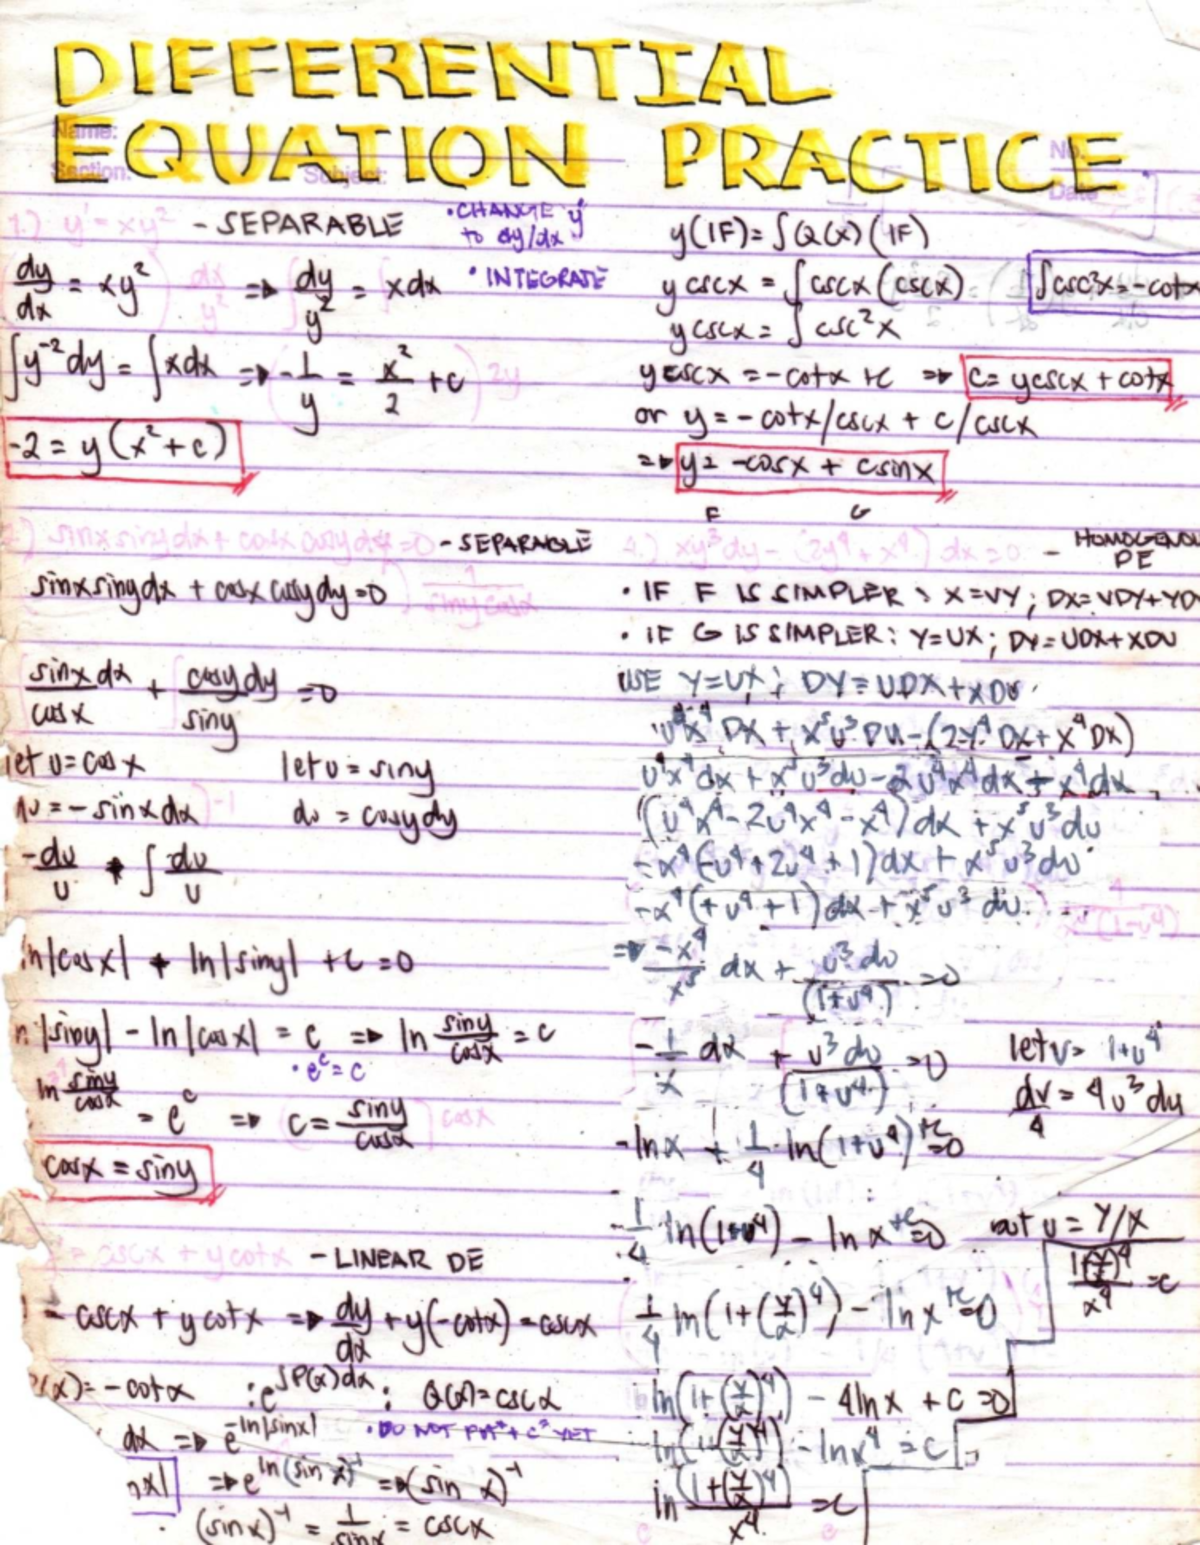 DIFFERENTIAL
EQUATION PRACTICE
Name:
Section: Subject:
No.
Date
1.) y' = xy² - SEPARABLE
• CHANGE y'
to dy/dx
• INTEGRATE
dy/dx = xy² dx/y² => dy/y² = xdx
∫y⁻²dy = ∫xdx => -1/y = x²/2 + c 2y
-2 = y(x² + c)
2) sinxsinydx + cosxcosydy = 0 - SEPARABLE
sinxsinydx + cosxcosydy = 0 1/sinycosx
sinxdx/cosx + cosydy/siny = 0
let u = cosx let u = siny
du = -sinxdx -1 du = cosydy
-du/u + ∫du/u
ln|cosx| + ln|siny| + c = 0
ln|siny| - ln|cosx| = c => ln siny/cosx = c
• eᶜ = c
ln siny/cosx = eᶜ => c = siny/cosx cosx
cosx = siny
= cscx + ycotx - LINEAR DE
= cscx + ycotx => dy/dx + y(-cotx) = cscx
P(x) = -cotx : e^∫P(x)dx ; Q(x) = cscx
dx => e^-ln|sinx| • DO NOT PUT "+C" YET
nx| => e^ln(sinx)⁻¹ => (sinx)⁻¹
(sinx)⁻¹ = 1/sinx = cscx
y(IF) = ∫Q(x)(IF)
y cscx = ∫cscx(cscx) ∫csc²x = -cotx
y cscx = ∫csc²x
ycscx = -cotx + c => c = ycscx + cotx
or y = -cotx/cscx + c/cscx
=> y = -cosx + csinx
F G
4.) xy³dy - (2y⁴ + x⁴)dx = 0 - HOMOGENOU
DE
• IF F IS SIMPLER: X=VY; DX=VDY+YD
• IF G IS SIMPLER: Y=UX; DY=UDX+XDU
USE Y=UX; DY=UDX+XDU
u⁴x⁴DX + x⁵u³DU - (2y⁴DX + x⁴DX)
u⁴x⁴dx + x⁵u³du - 2u⁴x⁴dx - x⁴dx
(u⁴x⁴ - 2u⁴x⁴ - x⁴)dx + x⁵u³du
-x⁴(-u⁴ + 2u⁴ + 1)dx + x⁵u³du
-x⁴(+u⁴ + 1)dx + x⁵u³du
=> -x⁴/x⁵ dx + u³du/(1+u⁴) = 0
-1/x dx + u³du/(1+u⁴) = 0 let v = 1+u⁴
dv/4 = u³du
-lnx + 1/4 ln(1+u⁴) + c = 0
1/4 ln(1+u⁴) - lnx + c = 0 but u = Y/X
1/4 ln(1+(y/x)⁴) - lnx + c = 0
1+(y/x)⁴/x⁴ = c
ln(1+(y/x)⁴) - 4lnx + c = 0
ln(1+(y/x)⁴) - lnx⁴ = c
ln (1+(y/x)⁴)/x⁴ = c